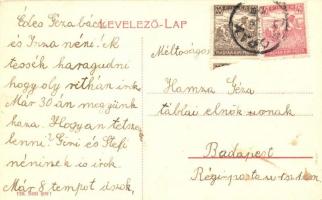 LEVELEZŐ-LAP
Édes Géza bácsi
és Irza néni! Ne
tessék haragudni
hogy oly ritkán irok
Már 30 án megyünk
haza. Hogyan tetszik
lenni? Gini és Stefi
néninek is irok.
Már 8 tempot úszok,
Méltóságos
Hamza Géza
táblai elnök urnak
Budapest
Régi-posta u.